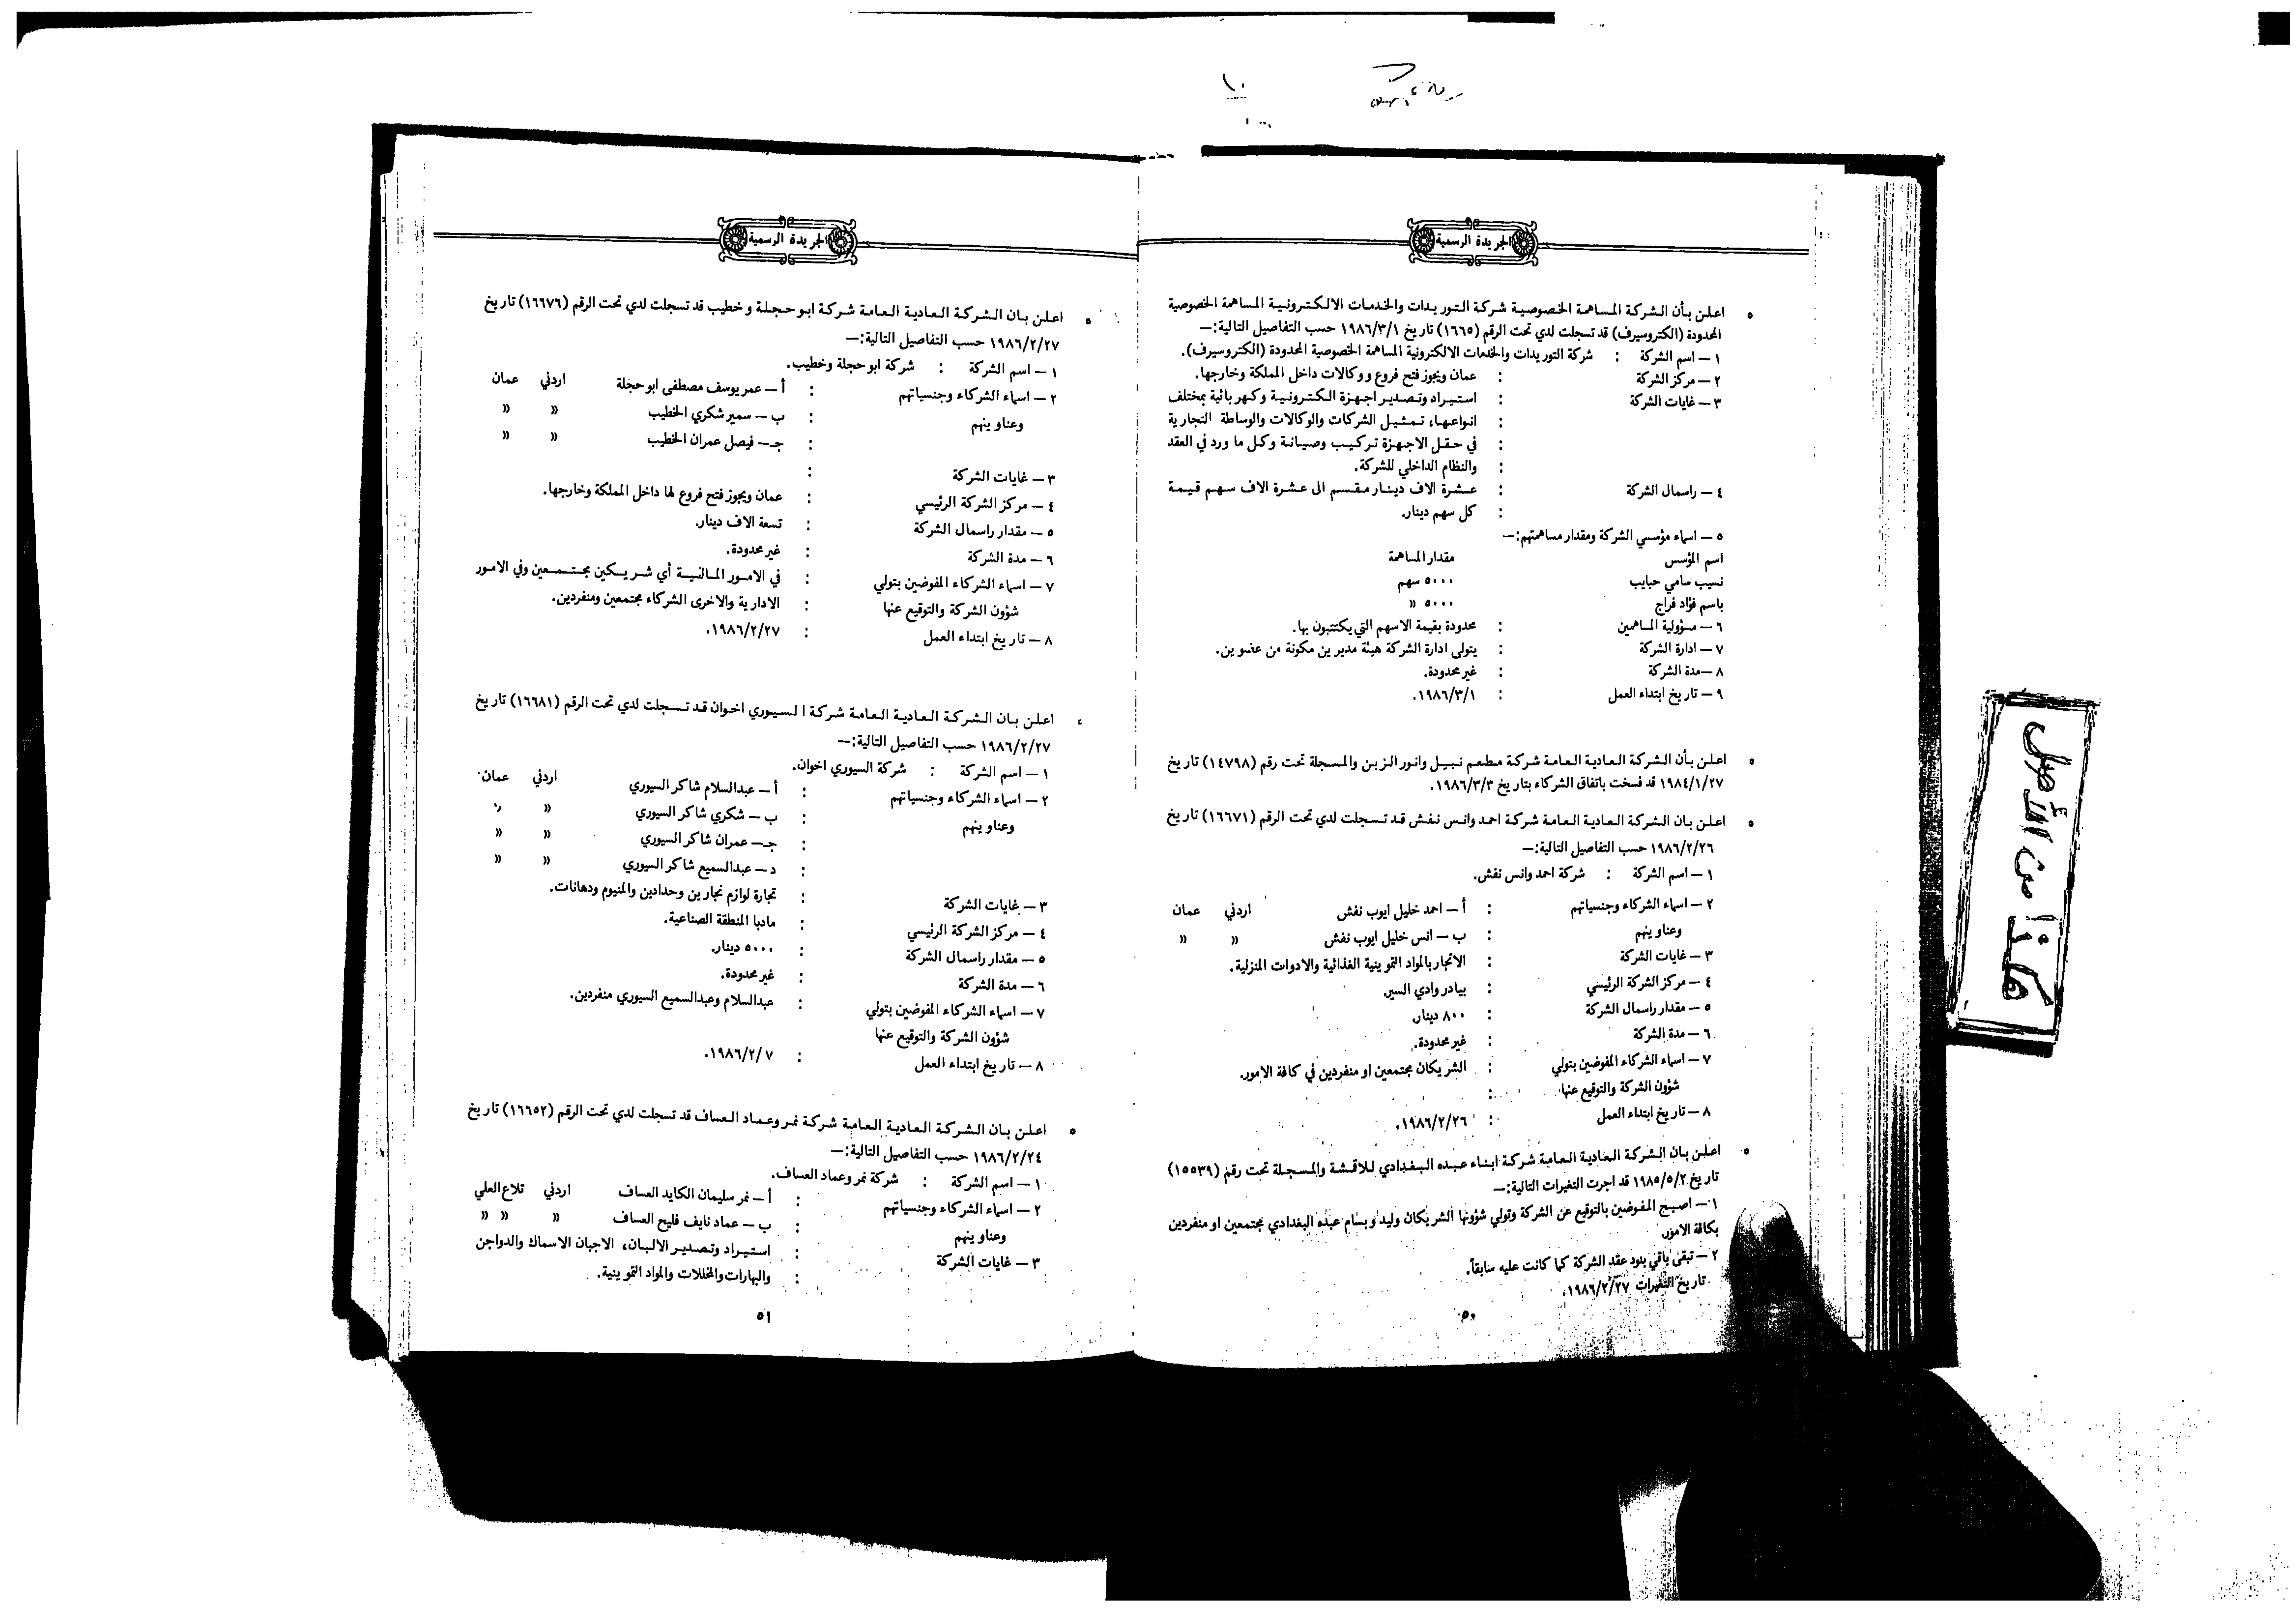 الجريدة الرسمية
اعلن بأن الشركة المساهمة الخصوصية شركة التوريدات والخدمات الالكترونية المساهمة الخصوصية
المحدودة (الكتروسيرف) قد تسجلت لدي تحت الرقم (١٦٦٥) تاريخ ١٩٨٦/٣/١ حسب التفاصيل التالية:—
١ — اسم الشركة : شركة التوريدات والخدمات الالكترونية المساهمة الخصوصية المحدودة (الكتروسيرف).
٢ — مركز الشركة : عمان ويجوز فتح فروع ووكالات داخل المملكة وخارجها.
٣ — غايات الشركة : استيراد وتصدير اجهزة الكترونية وكهربائية بمختلف
: انواعها، تمثيل الشركات والوكالات والوساطة التجارية
: في حقل الاجهزة تركيب وصيانة وكل ما ورد في العقد
: والنظام الداخلي للشركة.
٤ — راسمال الشركة : عشرة الاف دينار مقسم الى عشرة الاف سهم قيمة
: كل سهم دينار.
٥ — اسماء مؤسسي الشركة ومقدار مساهمتهم:—
اسم المؤسس مقدار المساهمة
نسيب سامي حبايب ٥٠٠٠ سهم
باسم فؤاد فراج ٥٠٠٠ »
٦ — مسؤولية المساهمين : محدودة بقيمة الاسهم التي يكتتبون بها.
٧ — ادارة الشركة : يتولى ادارة الشركة هيئة مديرين مكونة من عضوين.
٨ —مدة الشركة : غير محدودة.
٩ — تاريخ ابتداء العمل : ١٩٨٦/٣/١.
اعلن بأن الشركة العادية العامة شركة مطعم نبيل وانور الزبن والمسجلة تحت رقم (١٤٧٩٨) تاريخ
١٩٨٤/١/٢٧ قد فسخت باتفاق الشركاء بتاريخ ١٩٨٦/٣/٣.
اعلن بان الشركة العادية العامة شركة احمد وانس نفش قد تسجلت لدي تحت الرقم (١٦٦٧١) تاريخ
١٩٨٦/٢/٢٦ حسب التفاصيل التالية:—
١ — اسم الشركة : شركة احمد وانس نفش.
٢ — اسماء الشركاء وجنسياتهم : أ — احمد خليل ايوب نفش اردني عمان
وعناوينهم : ب — انس خليل ايوب نفش » »
٣ — غايات الشركة : الاتجار بالمواد التموينية الغذائية والادوات المنزلية.
٤ — مركز الشركة الرئيسي : بيادر وادي السير.
٥ — مقدار راسمال الشركة : ٨٠٠ دينار.
٦ — مدة الشركة : غير محدودة.
٧ — اسماء الشركاء المفوضين بتولي : الشريكان مجتمعين او منفردين في كافة الامور.
شؤون الشركة والتوقيع عنها :
٨ — تاريخ ابتداء العمل : ١٩٨٦/٢/٢٦.
اعلن بان الشركة العادية العامة شركة ابناء عبده البغدادي للاقشة والمسجلة تحت رقم (١٥٥٣٩)
تاريخ ١٩٨٥/٥/٢ قد اجرت التغيرات التالية:—
١ — اصبح المفوضين بالتوقيع عن الشركة وتولي شؤونها الشريكان وليد وبسام عبده البغدادي مجتمعين او منفردين
بكافة الامور.
٢ — تبقى باقي بنود عقد الشركة كما كانت عليه سابقاً.
تاريخ التغيرات ١٩٨٦/٢/٢٧.
٥٠
الجريدة الرسمية
اعلن بان الشركة العادية العامة شركة ابو حجلة وخطيب قد تسجلت لدي تحت الرقم (١٦٦٧٦) تاريخ
١٩٨٦/٢/٢٧ حسب التفاصيل التالية:—
١ — اسم الشركة : شركة ابو حجلة وخطيب.
٢ — اسماء الشركاء وجنسياتهم : أ — عمر يوسف مصطفى ابو حجلة اردني عمان
وعناوينهم : ب — سمير شكري الخطيب » »
: جـ— فيصل عمران الخطيب » »
٣ — غايات الشركة :
٤ — مركز الشركة الرئيسي : عمان ويجوز فتح فروع لها داخل المملكة وخارجها.
٥ — مقدار راسمال الشركة : تسعة الاف دينار.
٦ — مدة الشركة : غير محدودة.
٧ — اسماء الشركاء المفوضين بتولي : في الامور المالية أي شريكين مجتمعين وفي الامور
شؤون الشركة والتوقيع عنها : الادارية والاخرى الشركاء مجتمعين ومنفردين.
٨ — تاريخ ابتداء العمل : ١٩٨٦/٢/٢٧.
اعلن بان الشركة العادية العامة شركة السيوري اخوان قد تسجلت لدي تحت الرقم (١٦٦٨١) تاريخ
١٩٨٦/٢/٢٧ حسب التفاصيل التالية:—
١ — اسم الشركة : شركة السيوري اخوان.
٢ — اسماء الشركاء وجنسياتهم : أ — عبدالسلام شاكر السيوري اردني عمان
وعناوينهم : ب — شكري شاكر السيوري » »
: جـ— عمران شاكر السيوري » »
: د — عبدالسميع شاكر السيوري » »
٣ — غايات الشركة : تجارة لوازم نجارين وحدادين والمنيوم ودهانات.
٤ — مركز الشركة الرئيسي : مادبا المنطقة الصناعية.
٥ — مقدار راسمال الشركة : ٥٠٠٠ دينار.
٦ — مدة الشركة : غير محدودة.
٧ — اسماء الشركاء المفوضين بتولي : عبدالسلام وعبدالسميع السيوري منفردين.
شؤون الشركة والتوقيع عنها
٨ — تاريخ ابتداء العمل : ١٩٨٦/٢/٧.
اعلن بان الشركة العادية العامة شركة نمر وعماد العساف قد تسجلت لدي تحت الرقم (١٦٦٥٢) تاريخ
١٩٨٦/٢/٢٤ حسب التفاصيل التالية:—
١ — اسم الشركة : شركة نمر وعماد العساف.
٢ — اسماء الشركاء وجنسياتهم : أ — نمر سليمان الكايد العساف اردني تلاع العلي
وعناوينهم : ب — عماد نايف فليح العساف » » »
٣ — غايات الشركة : استيراد وتصدير الالبان، الاجبان الاسماك والدواجن
: والبهارات والمخللات والمواد التموينية.
٥١
هكذا من الأصل